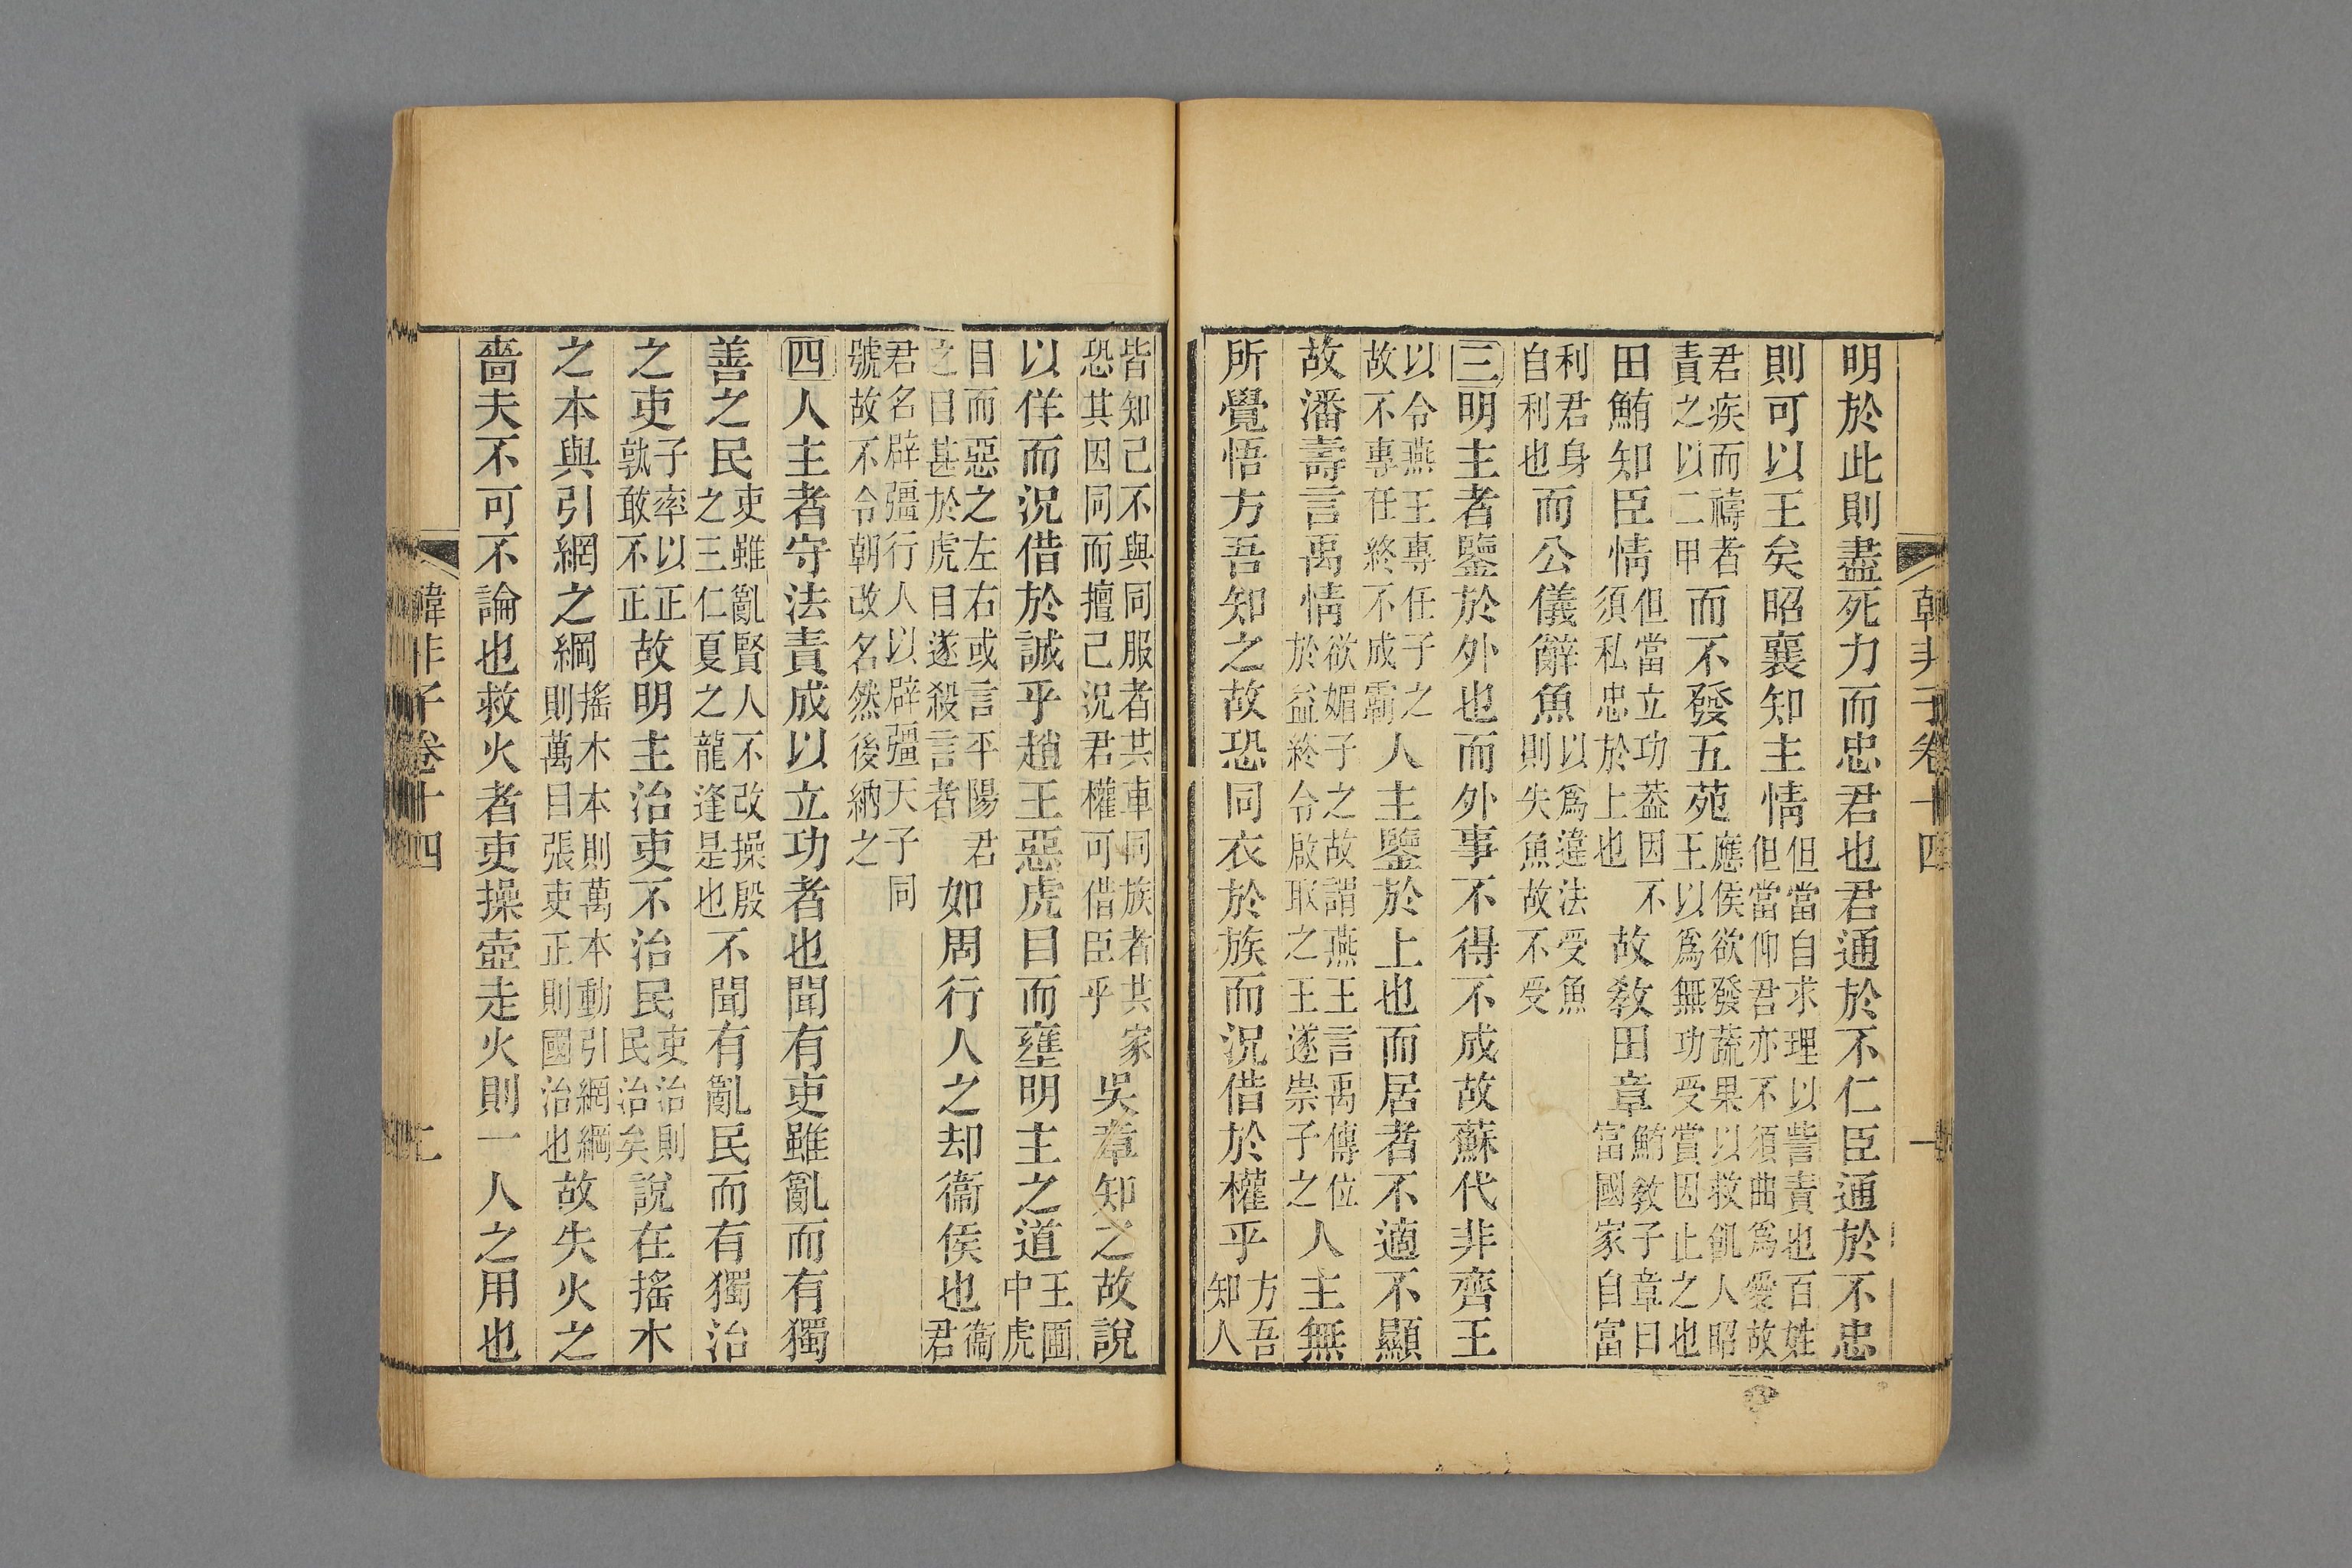 韓非子卷十四
一
明於此則盡死力而忠君也君通於不仁臣通於不忠
則可以王矣昭襄知主情但當自求理以訾責也百姓
但當仰君亦不須曲爲愛故
君疾而禱者
責之以二甲而不發五苑應侯欲發蔬果以救飢人昭
王以爲無功受賞因止之也
田鮪知臣情但當立功葢因不
須私忠於上也故敎田章鮪敎子章曰
富國家自富
利君身
自利也而公儀辭魚以爲違法受魚
則失魚故不受
三明主者鑒於外也而外事不得不成故蘇代非齊王
以令燕王專任子之
故不專任終不成霸人主鑒於上也而居者不適不顯
故潘壽言禹情欲媚子之故謂燕王言禹傳位
於益終令啟取之王遂崇子之人主無
所覺悟方吾知之故恐同衣於族而況借於權乎方吾
知人
皆知己不與同服者共車同族者共家
恐其因同而擅己況君權可借臣乎吳章知之故說
以佯而況借於誠乎趙王惡虎目而壅明主之道王圃
中虎
目而惡之左右或言平陽君
之目甚於虎目遂殺言者如周行人之却衞侯也衞
君
君名辟彊行人以辟彊天子同
號故不令朝改名然後納之
四人主者守法責成以立功者也聞有吏雖亂而有獨
善之民吏雖亂賢人不改操殷
之三仁夏之龍逢是也不聞有亂民而有獨治
之吏子率以正
孰敢不正故明主治吏不治民吏治則
民治矣說在搖木
之本與引網之綱搖木本則萬本動引網綱
則萬目張吏正則國治也故失火之
嗇夫不可不論也救火者吏操壺走火則一人之用也
韓非子卷十四